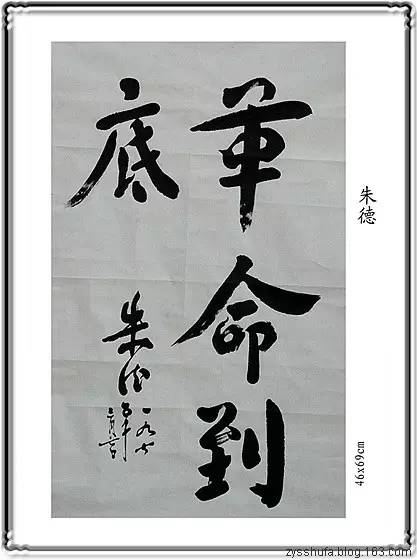 革命到
底
朱德
一九七
五年
朱德
46x69cm
zysshufa.blog.163.com